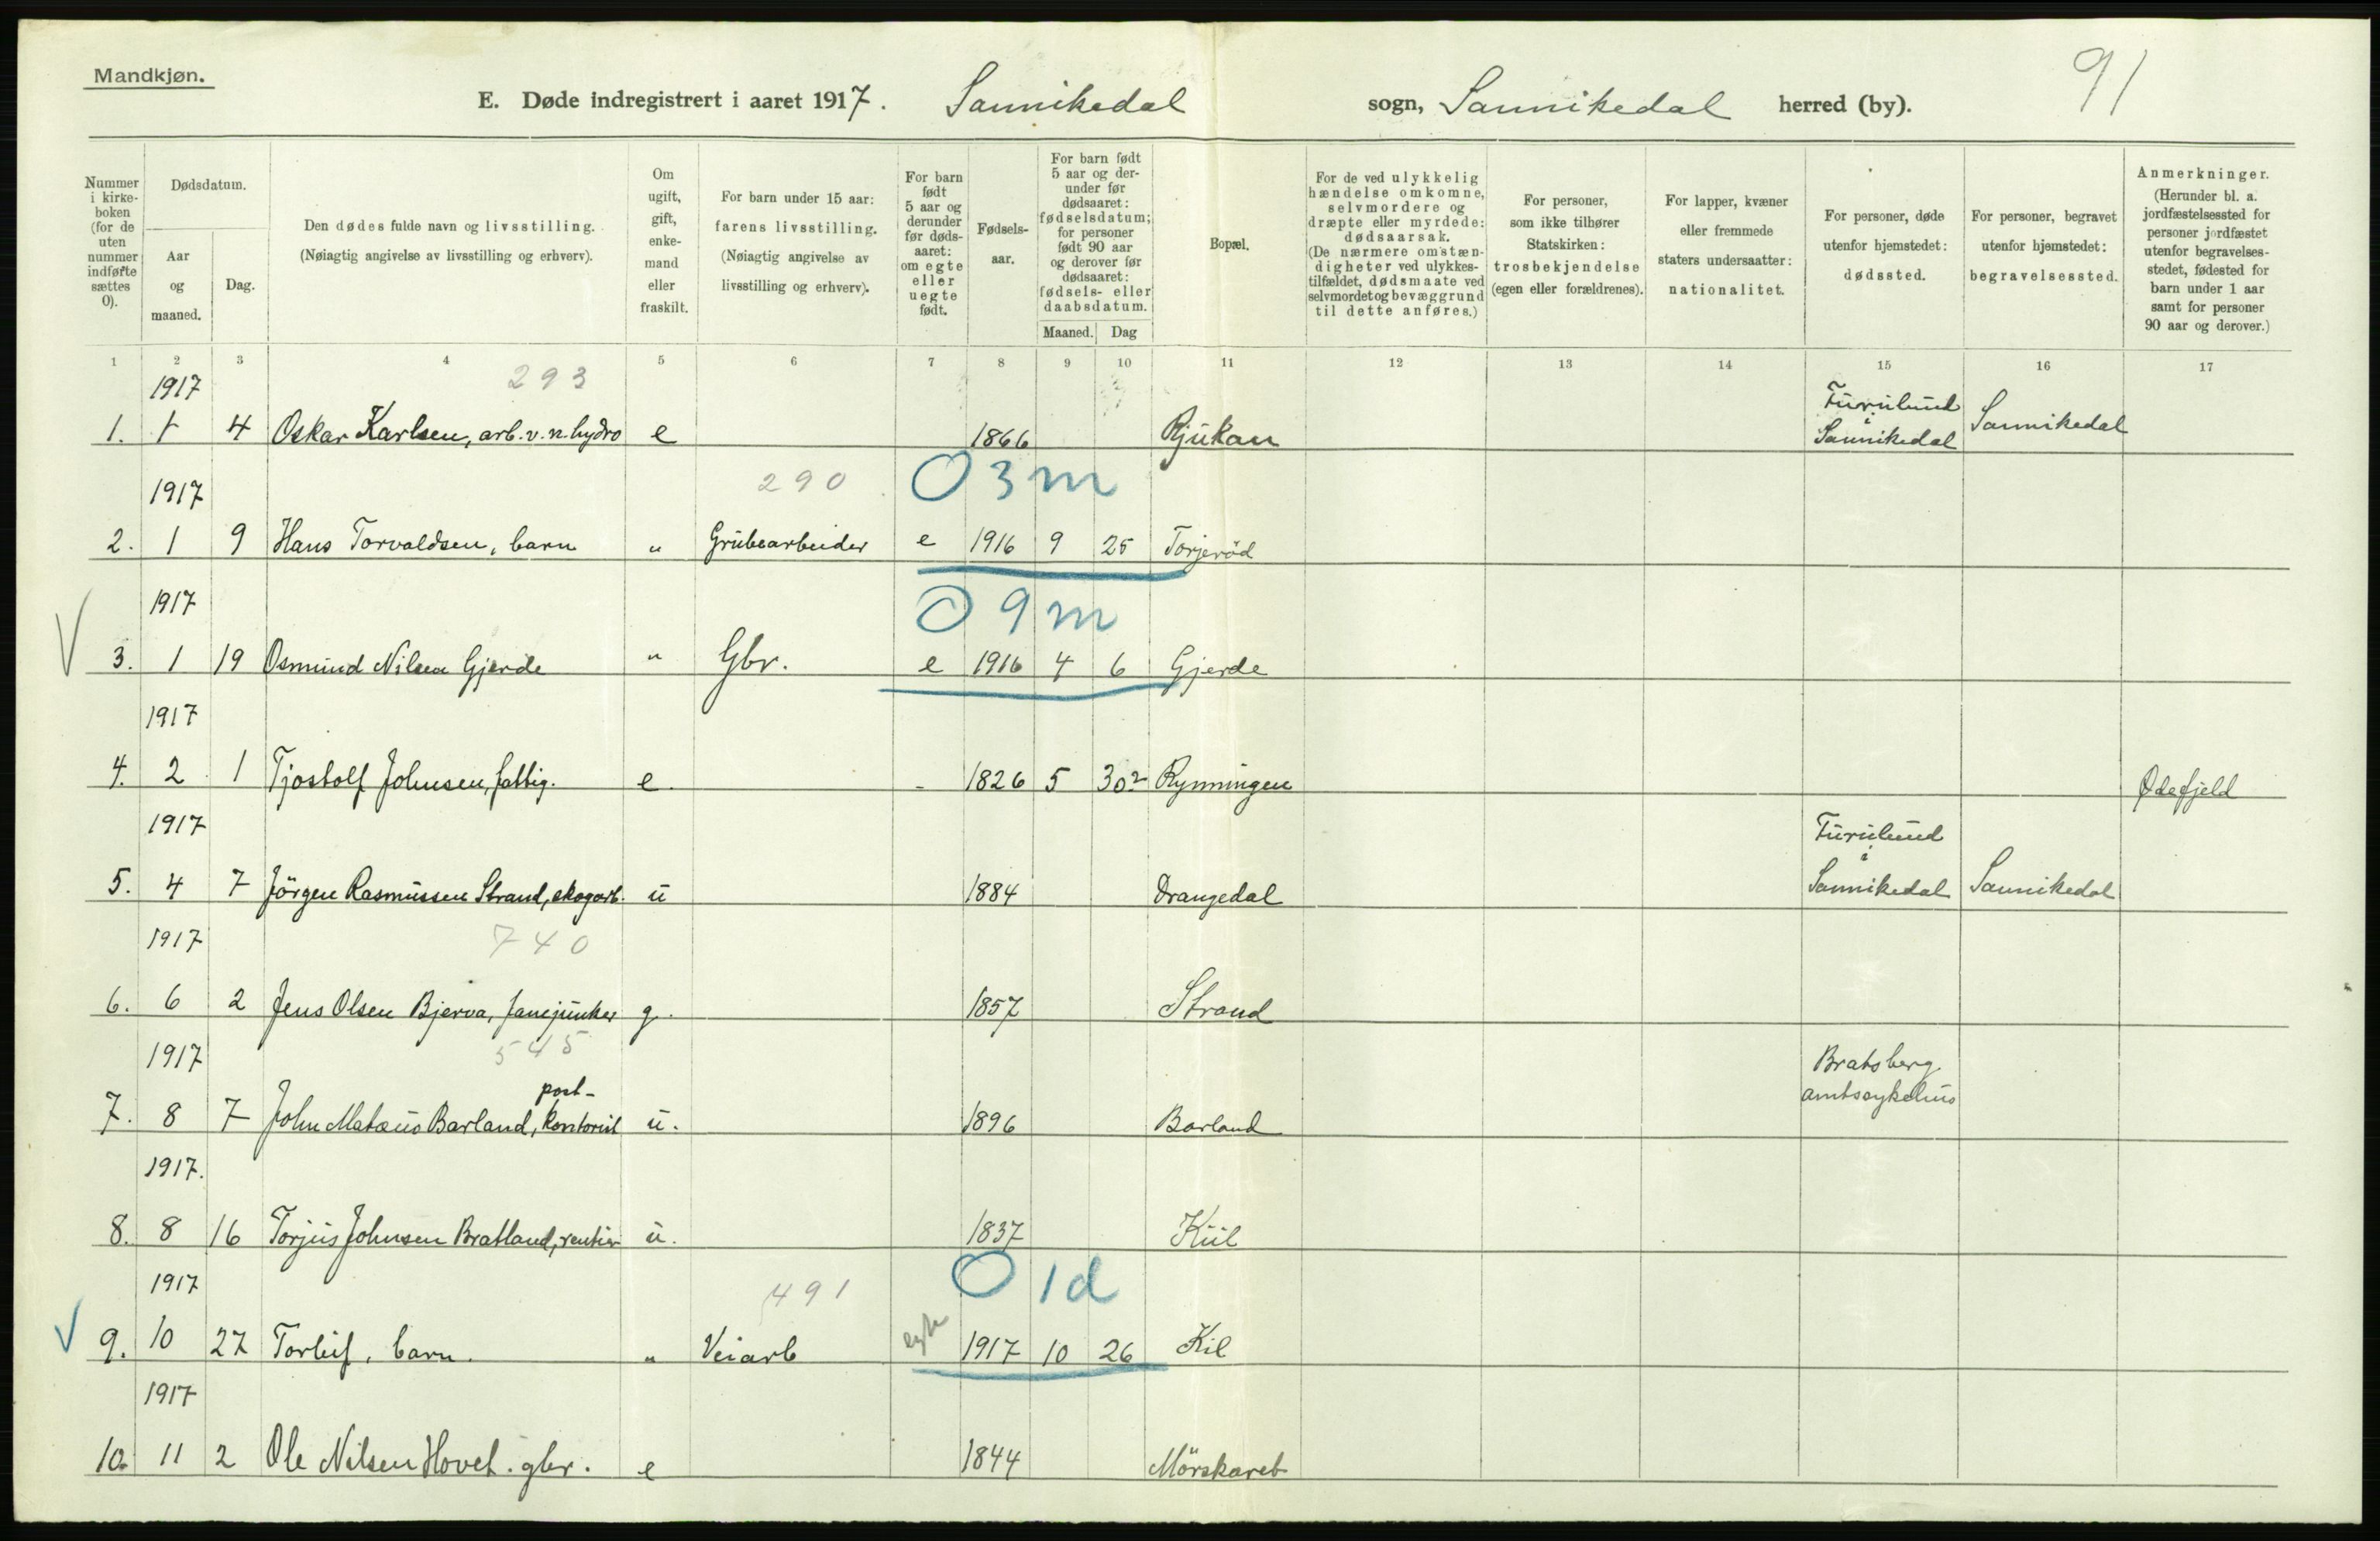 Mandkjøn.
E. Døde indregistrert i aaret 1917. Sannikedal sogn, Sannikedal herred (by). 91
Nummer i kirke-boken (for de uten nummer indførte sættes 0).
Dødsdatum.
Aar og maaned.
Dag.
Den dødes fulde navn og livsstilling.
(Nøiagtig angivelse av livsstilling og erhverv).
Om ugift, gift, enke-mand eller fraskilt.
For barn under 15 aar: farens livsstilling.
(Nøiagtig angivelse av livsstilling og erhverv).
For barn født 5 aar og derunder før døds-aaret: om egte eller uegte født.
Fødsels-aar.
For barn født 5 aar og der-under før dødsaaret: fødselsdatum; for personer født 90 aar og derover før dødsaaret: fødsels- eller daabsdatum.
Maaned. Dag
Bopæl.
For de ved ulykkelig hændelse omkomne, selvmordere og dræpte eller myrdede: dødsaarsak.
(De nærmere omstæn-digheter ved ulykkes-tilfældet, dødsmaate ved selvmordet og bevæggrund til dette anføres.)
For personer, som ikke tilhører Statskirken: trosbekjendelse (egen eller forældrenes).
For lapper, kvæner eller fremmede staters undersaatter: nationalitet.
For personer, døde utenfor hjemstedet: dødssted.
For personer, begravet utenfor hjemstedet: begravelsessted.
Anmerkninger.
(Herunder bl. a. jordfæstelsessted for personer jordfæstet utenfor begravelses-stedet, fødested for barn under 1 aar samt for personer 90 aar og derover.)
1 2 3 4 5 6 7 8 9 10 11 12 13 14 15 16 17
1917 293 Furulund i
1. 1 4 Oskar Karlsen, arb. v. n. hydro e 1866 Rjukan Sannikedal Sannikedal
1917 290 0 3 m
2. 1 9 Hans Torvaldsen, barn " Grubearbeider e 1916 9 25 Torjeröd
1917 0 9 m
3. 1 19 Osmund Nilsen Gjerde " Gbr. e 1916 4 6 Gjerde
1917
4. 2 1 Tjostolf Johnsen, fattig. e. - 1826 5 30 Rynningen Ødefjeld
1917 Furulund i
5. 4 7 Jörgen Rasmussen Strand, skogarb. u 1884 Drangedal Sannikedal Sannikedal
1917 740
6. 6 2 Jens Olsen Bjerva, fanejunker g. 1857 Strand
1917 545 Bratsberg
post- amtssykehus
7. 8 7 John Matæus Barland, kontorist u. 1896 Barland
1917.
8. 8 16 Torjus Johnsen Bratland, rentier u. 1837 Kiil
1917 491 0 1 d
9. 10 27 Torleif, barn. " Veiarb egte 1917 10 26 Kil
1917
10. 11 2 Ole Nilsen Hovet. gbr. e 1844 Mörskaret